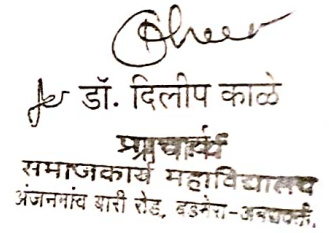 डॉ. दिलीप काळे
प्राचार्य
समाजकार्य महाविद्यालय
अंजनगांव बारी रोड, बडनेरा-अमरावती.